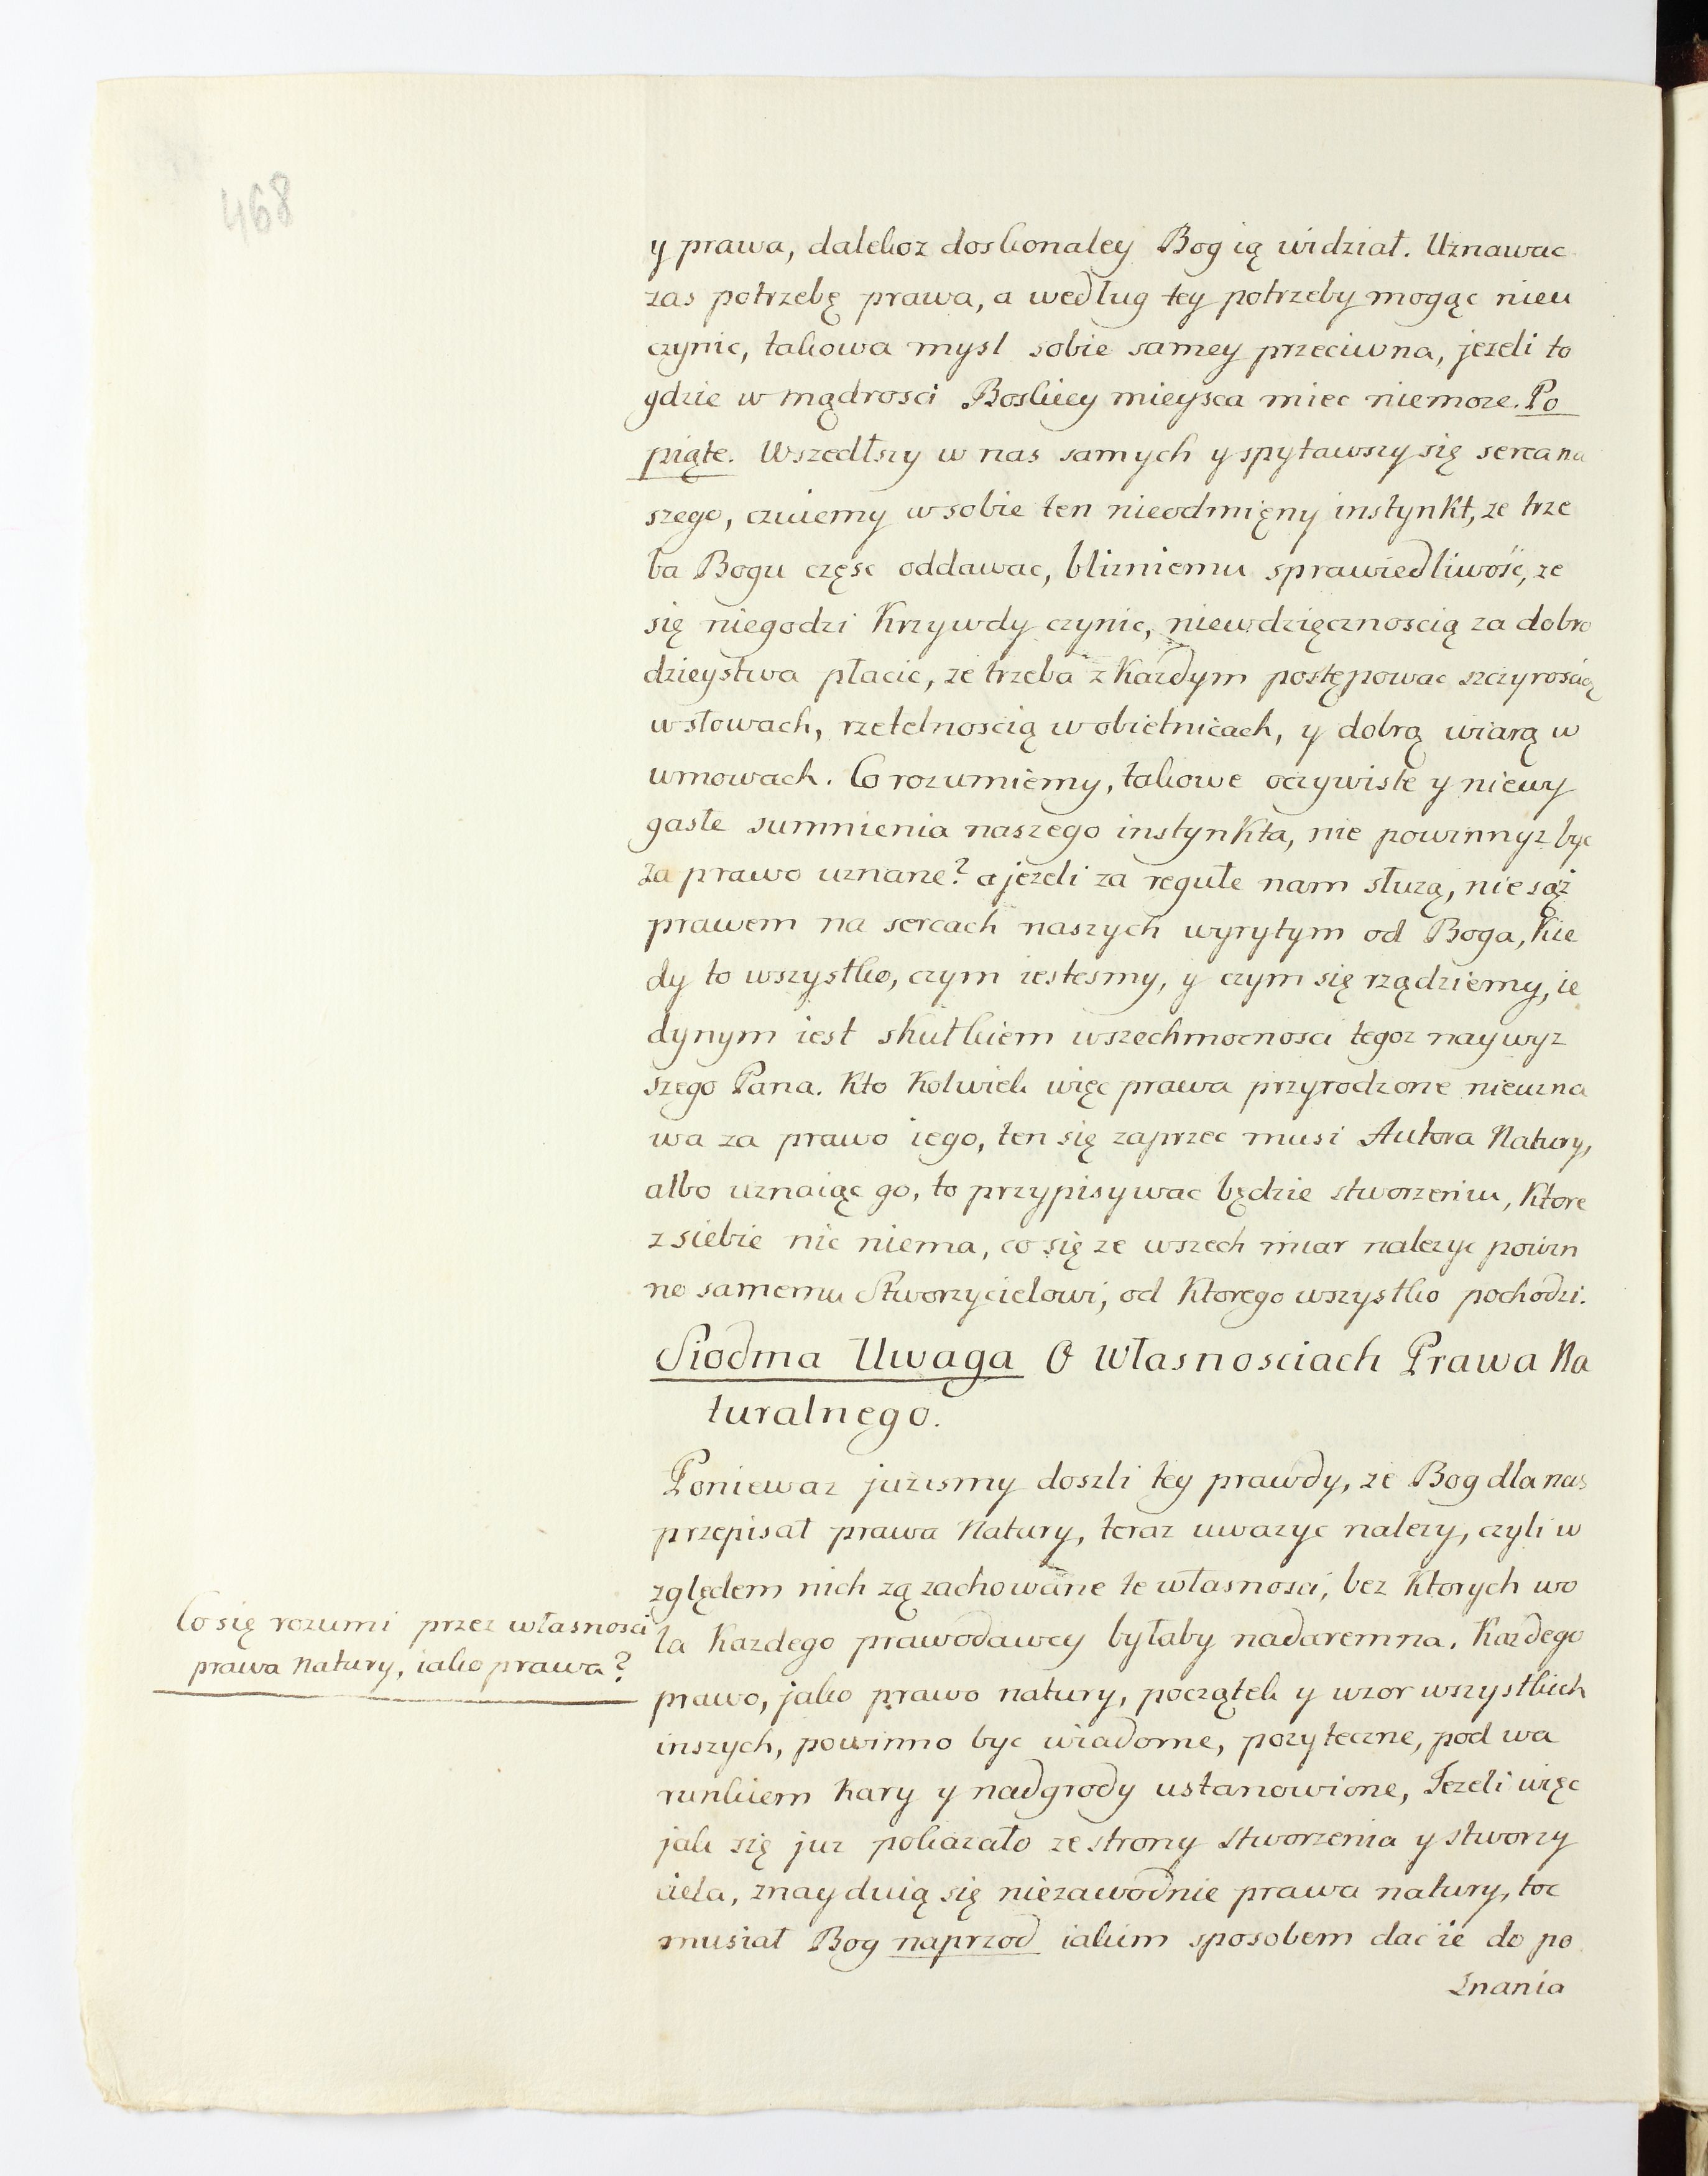 468
y prawa, dalekoz doskonaley Bog ią widział. Uznawac
zas potrzebę prawa, a według tey potrzeby mogąc nieu
czynic, takowa mysl sobie samey przeciwna, jezeli to
gdzie w mądrosci Boskiey mieysca miec niemoze. Po
piąte. Wszedłszy w nas samych y spytawszy się serca na
szego, czuiemy w sobie ten nieodmięny instynkt, ze trze
ba Bogu częsc oddawac, blizniemu sprawiedliwość, ze
się niegodzi Krzywdy czynic, niewdzięcznoscią za dobro
dzieystwa płacic, ze trzeba z Kazdym postępowac szczyroscią
w słowach, rzetelnoscią w obietnicach, y dobrą wiarą w
umowach. Co rozumiemy, takowe oczywiste y niewy
gasłe sumnienia naszego instynkta, nie powinnyz byc
za prawo uznane? a jezeli za regułe nam słuzą, nie sąż
prawem na sercach naszych wyrytym od Boga, Kie
dy to wszystko, czym iestesmy, y czym się rządziemy, ie
dynym iest skutkiem wszechmocnosci tegoz naywyz
szego Pana. Kto Kolwiek więc prawa przyrodzone nieuzna
wa za prawo iego, ten się zaprzec musi Autora Natury,
albo uznaiąc go, to przypisywac będzie stworzeniu, Ktore
z siebie nic niema, co się ze wszech miar nalezyc powin
no samemu Stworzycielowi, od Ktorego wszystko pochodzi.
Siodma Uwaga O Własnosciach Prawa Na
turalnego.
Poniewaz juzesmy doszli tey prawdy, ze Bog dla nas
przepisał prawa Natury, teraz uwazyc nalezy, czyli w
zględem nich zą zachowane te własnosci, bez Ktorych wo
la Kazdego prawodawcy byłaby nadaremna. Kazdego
prawo, jako prawo natury, początek y wzor wszystkich
inszych, powinno byc wiadome, pozyteczne, pod wa
runkiem Kary y nadgrody ustanowione, Jezeli więc
jak się juz pokazało ze strony stworzenia y stworzy
ciela, znayduią się niezawodnie prawa natury, toc
musiał Bog naprzod iakim sposobem dac ie do po
znania
Co się rozumi przez własnosci
prawa Natury, iako prawa?